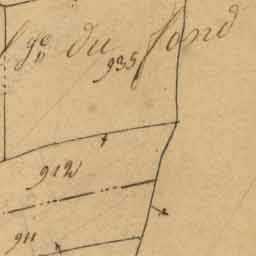 du fond
935
912
911